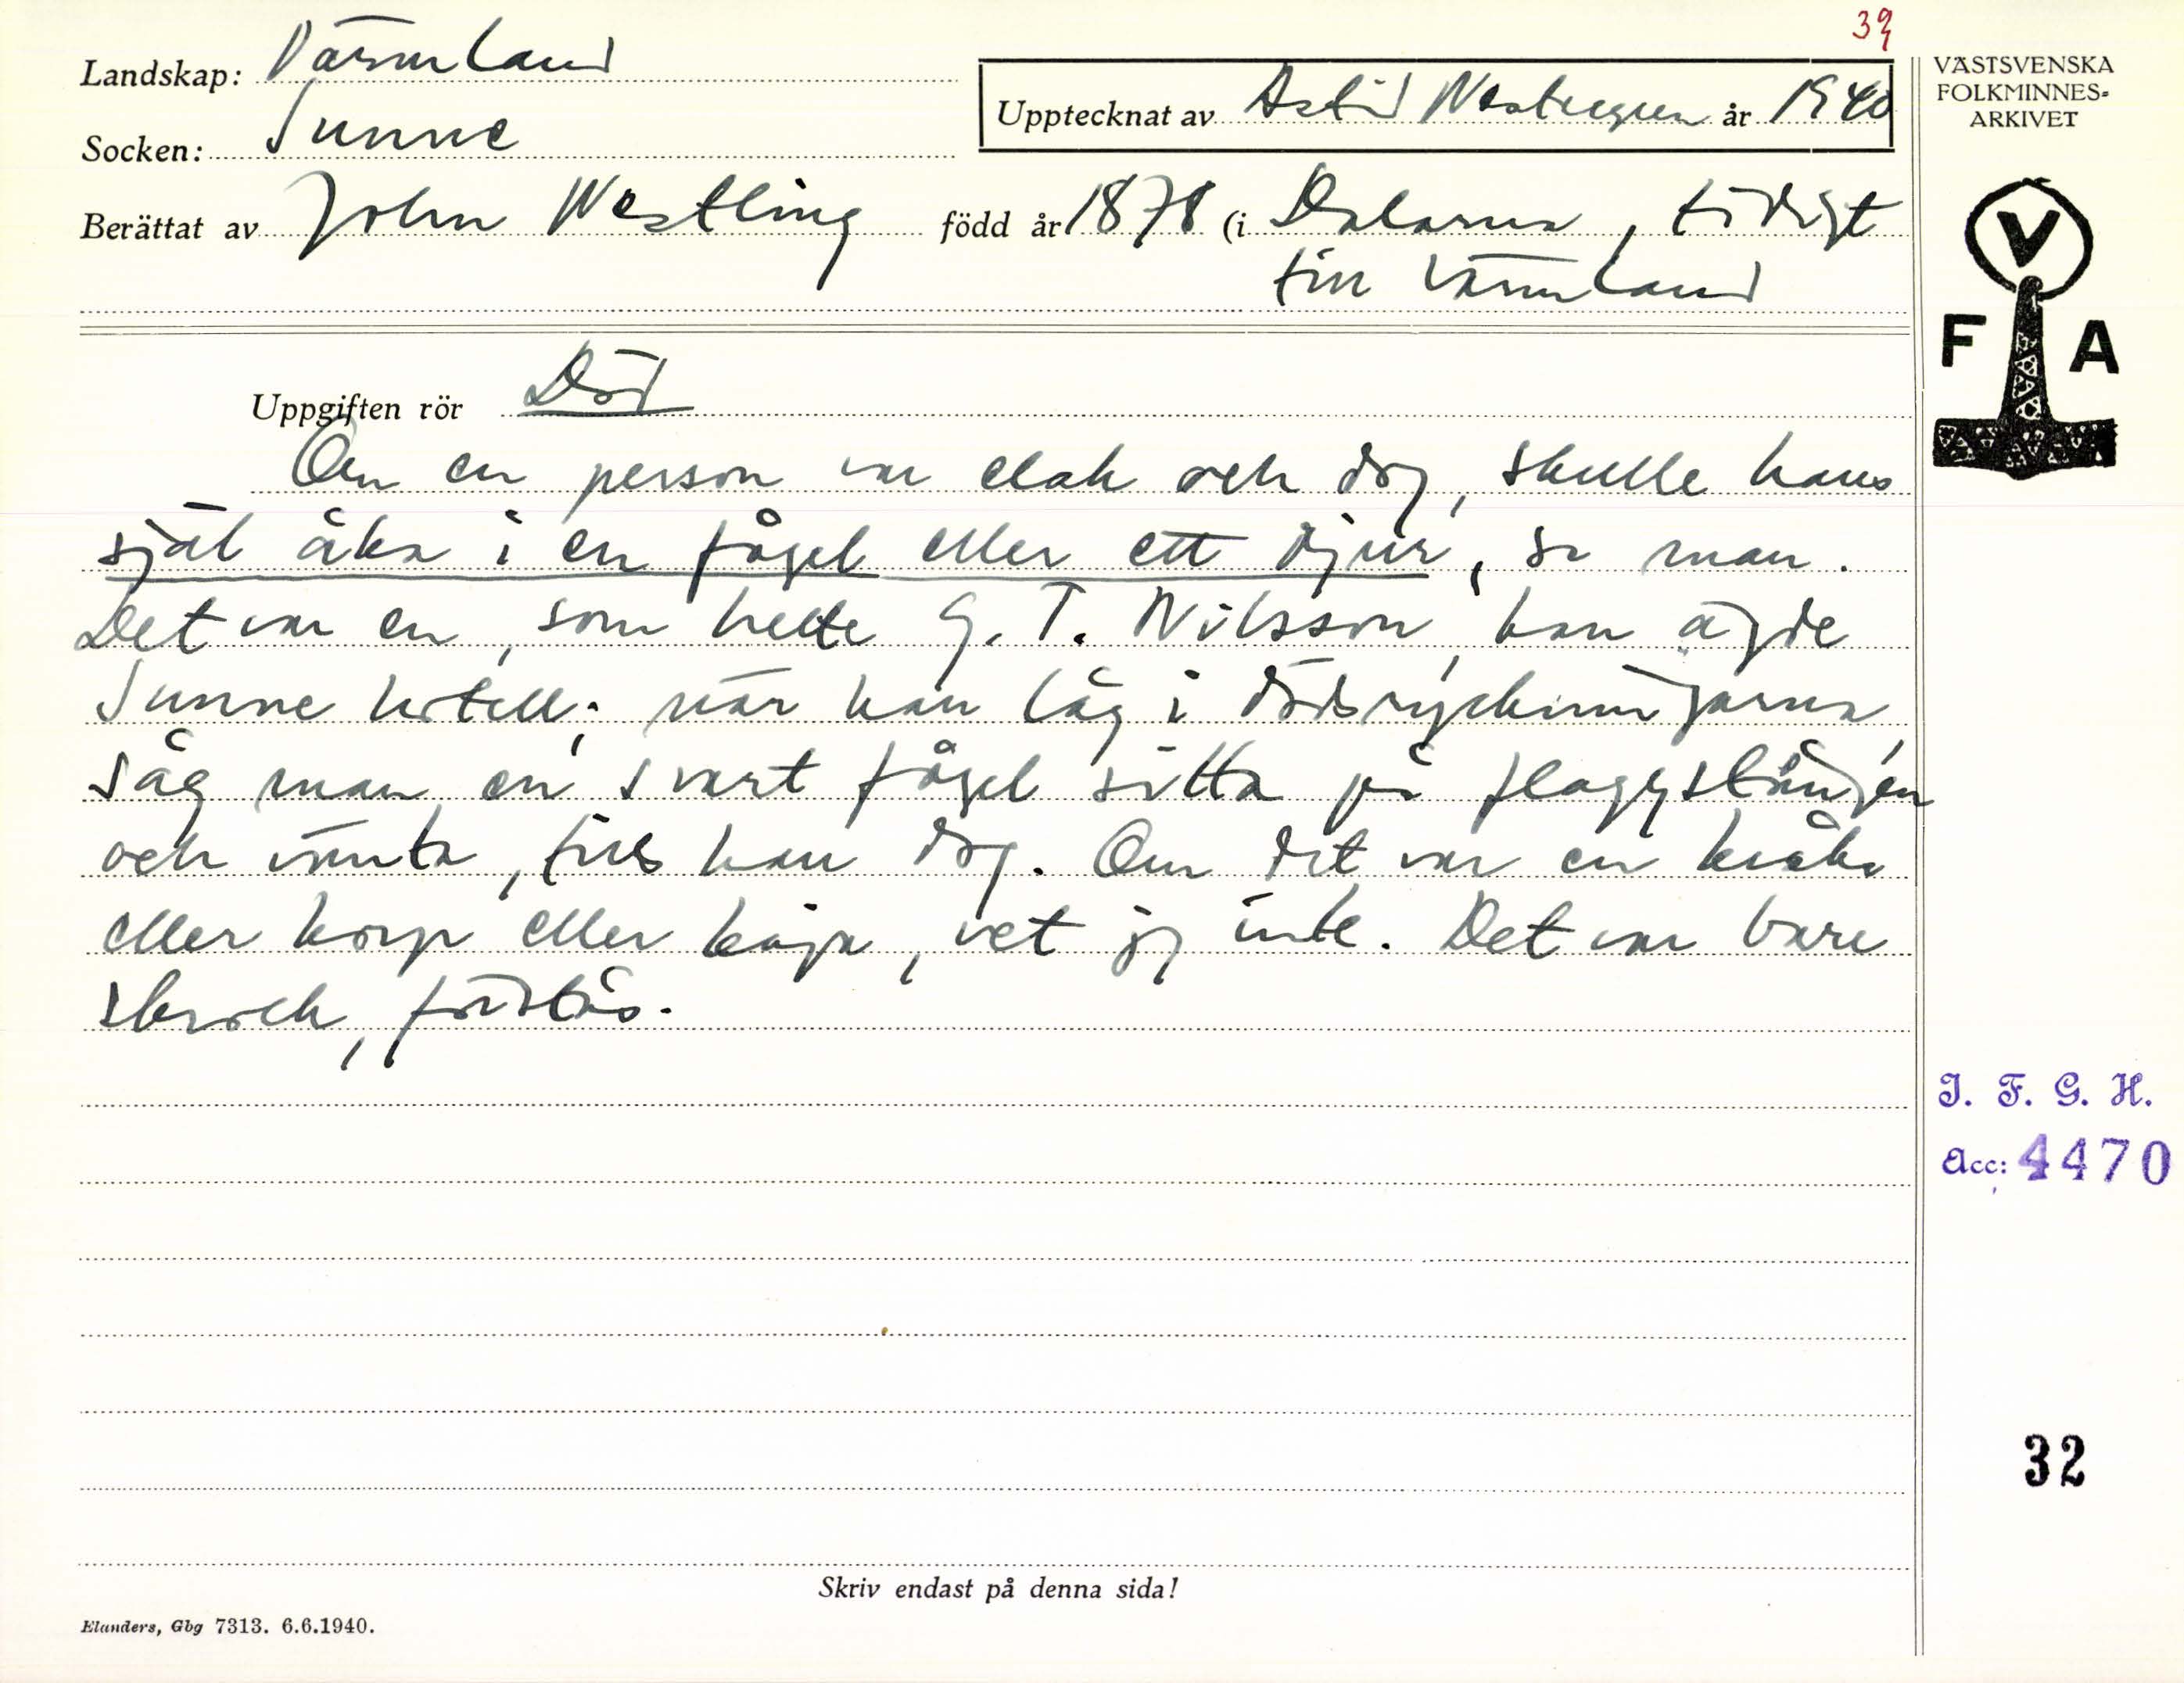 39
Landskap: Värmland
Socken: Sunne
Upptecknat av Astrid Westergren år 1940
Berättat av John Westling född år 1878 (i Dalarna, tidigt
till Värmland
Uppgiften rör Död
Om en person var elak och dog, skulle hans
själ åka i en fågel eller ett djur, sa man.
Det var en, som hette G. T. Nilsson, han ägde
Sunne hotell; när han låg i dödsryckningarna,
såg man en svart fågel sitta på flaggstången
och vänta, tills han dog. Om det var en kråka
eller korp eller kaja, vet jag inte. Det var bare
skrock, förstås.
Skriv endast på denna sida!
Elanders, Gbg 7313. 6.6.1940.
VÄSTSVENSKA
FOLKMINNES-
ARKIVET
V
F A
I. F. G. H.
Acc: 4470
32